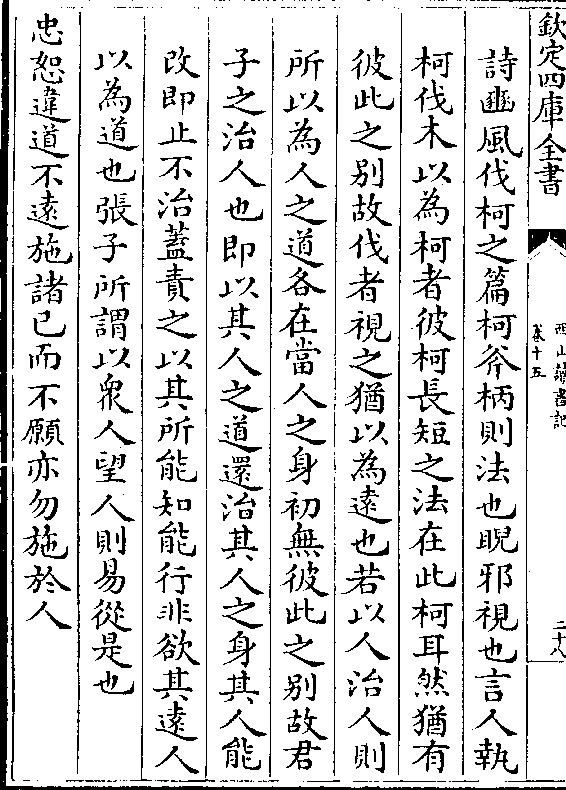 欽定四庫全書
西山讀書記
卷十五
二十八
詩豳風伐柯之篇柯斧柄則法也睨邪視也言人執
柯伐木以為柯者彼柯長短之法在此柯耳然猶有
彼此之别故伐者視之猶以為遠也若以人治人則
所以為人之道各在當人之身初無彼此之别故君
子之治人也即以其人之道還治其人之身其人能
改即止不治蓋責之以其所能知能行非欲其遠人
以為道也張子所謂以衆人望人則易從是也
忠恕違道不遠施諸已而不願亦勿施於人